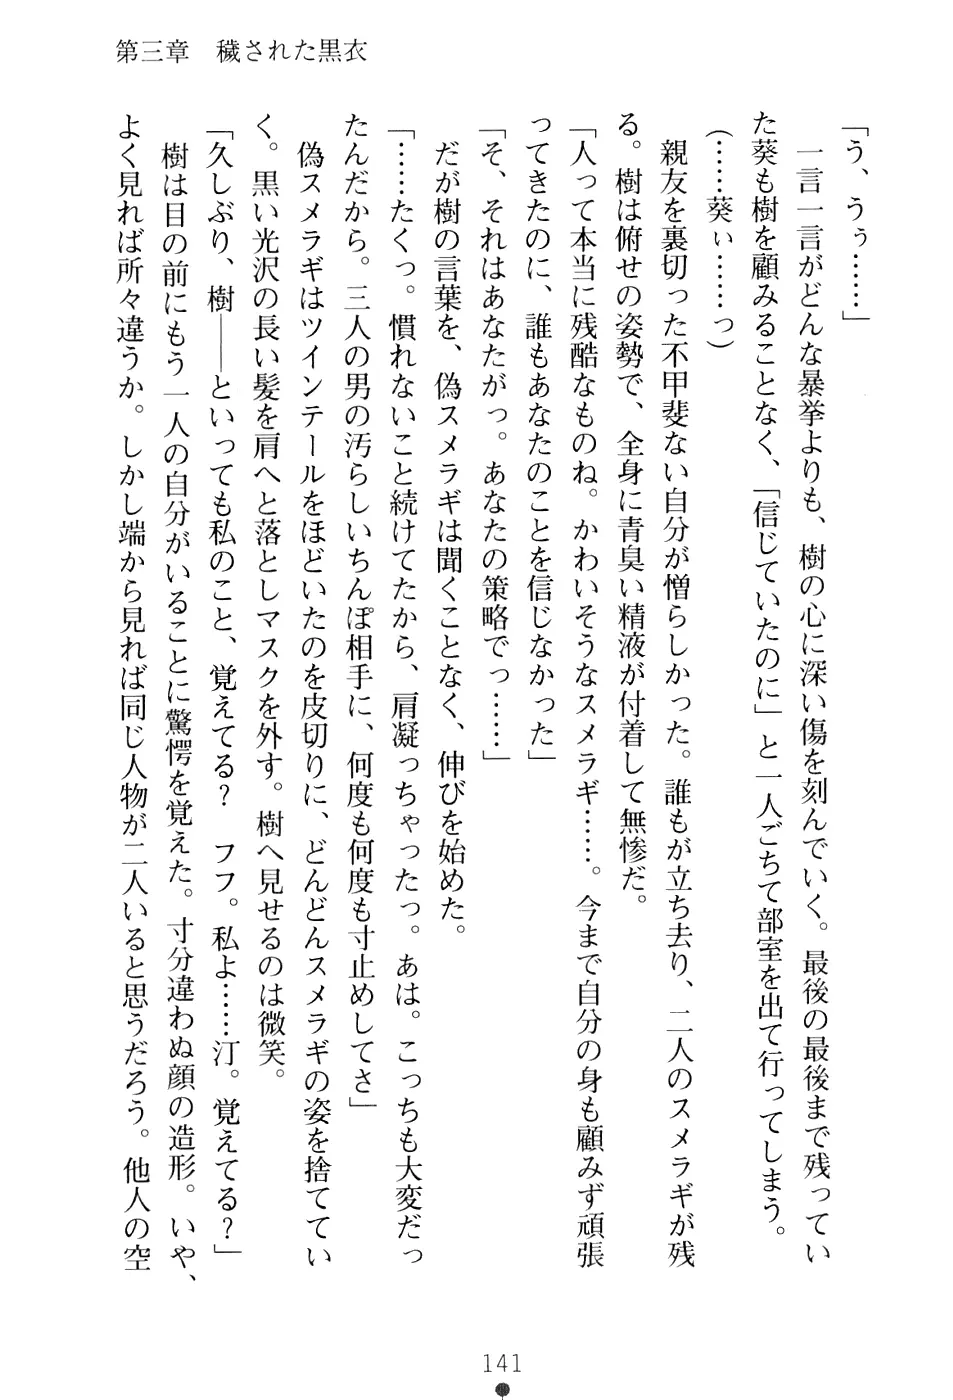 第三章　穢された黒衣
「う、うぅ……」
一言一言がどんな暴挙よりも、樹の心に深い傷を刻んでいく。最後の最後まで残ってい
た葵も樹を顧みることなく、「信じていたのに」と一人ごちて部室を出て行ってしまう。
(……葵ぃ……っ)
親友を裏切った不甲斐ない自分が憎らしかった。誰もが立ち去り、二人のスメラギが残
る。樹は俯せの姿勢で、全身に青臭い精液が付着して無惨だ。
「人って本当に残酷なものね。かわいそうなスメラギ……。今まで自分の身も顧みず頑張
ってきたのに、誰もあなたのことを信じなかった」
「そ、それはあなたがっ。あなたの策略でっ……」
だが樹の言葉を、偽スメラギは聞くことなく、伸びを始めた。
「……たくっ。慣れないこと続けてたから、肩凝っちゃったっ。あは。こっちも大変だっ
たんだから。三人の男の汚らしいちんぽ相手に、何度も何度も寸止めしてさ」
偽スメラギはツインテールをほどいたのを皮切りに、どんどんスメラギの姿を捨ててい
く。黒い光沢の長い髪を肩へと落としマスクを外す。樹へ見せるのは微笑。
「久しぶり、樹――といっても私のこと、覚えてる？　フフ。私よ……汀。覚えてる？」
樹は目の前にもう一人の自分がいることに驚愕を覚えた。寸分違わぬ顔の造形。いや、
よく見れば所々違うか。しかし端から見れば同じ人物が二人いると思うだろう。他人の空
141